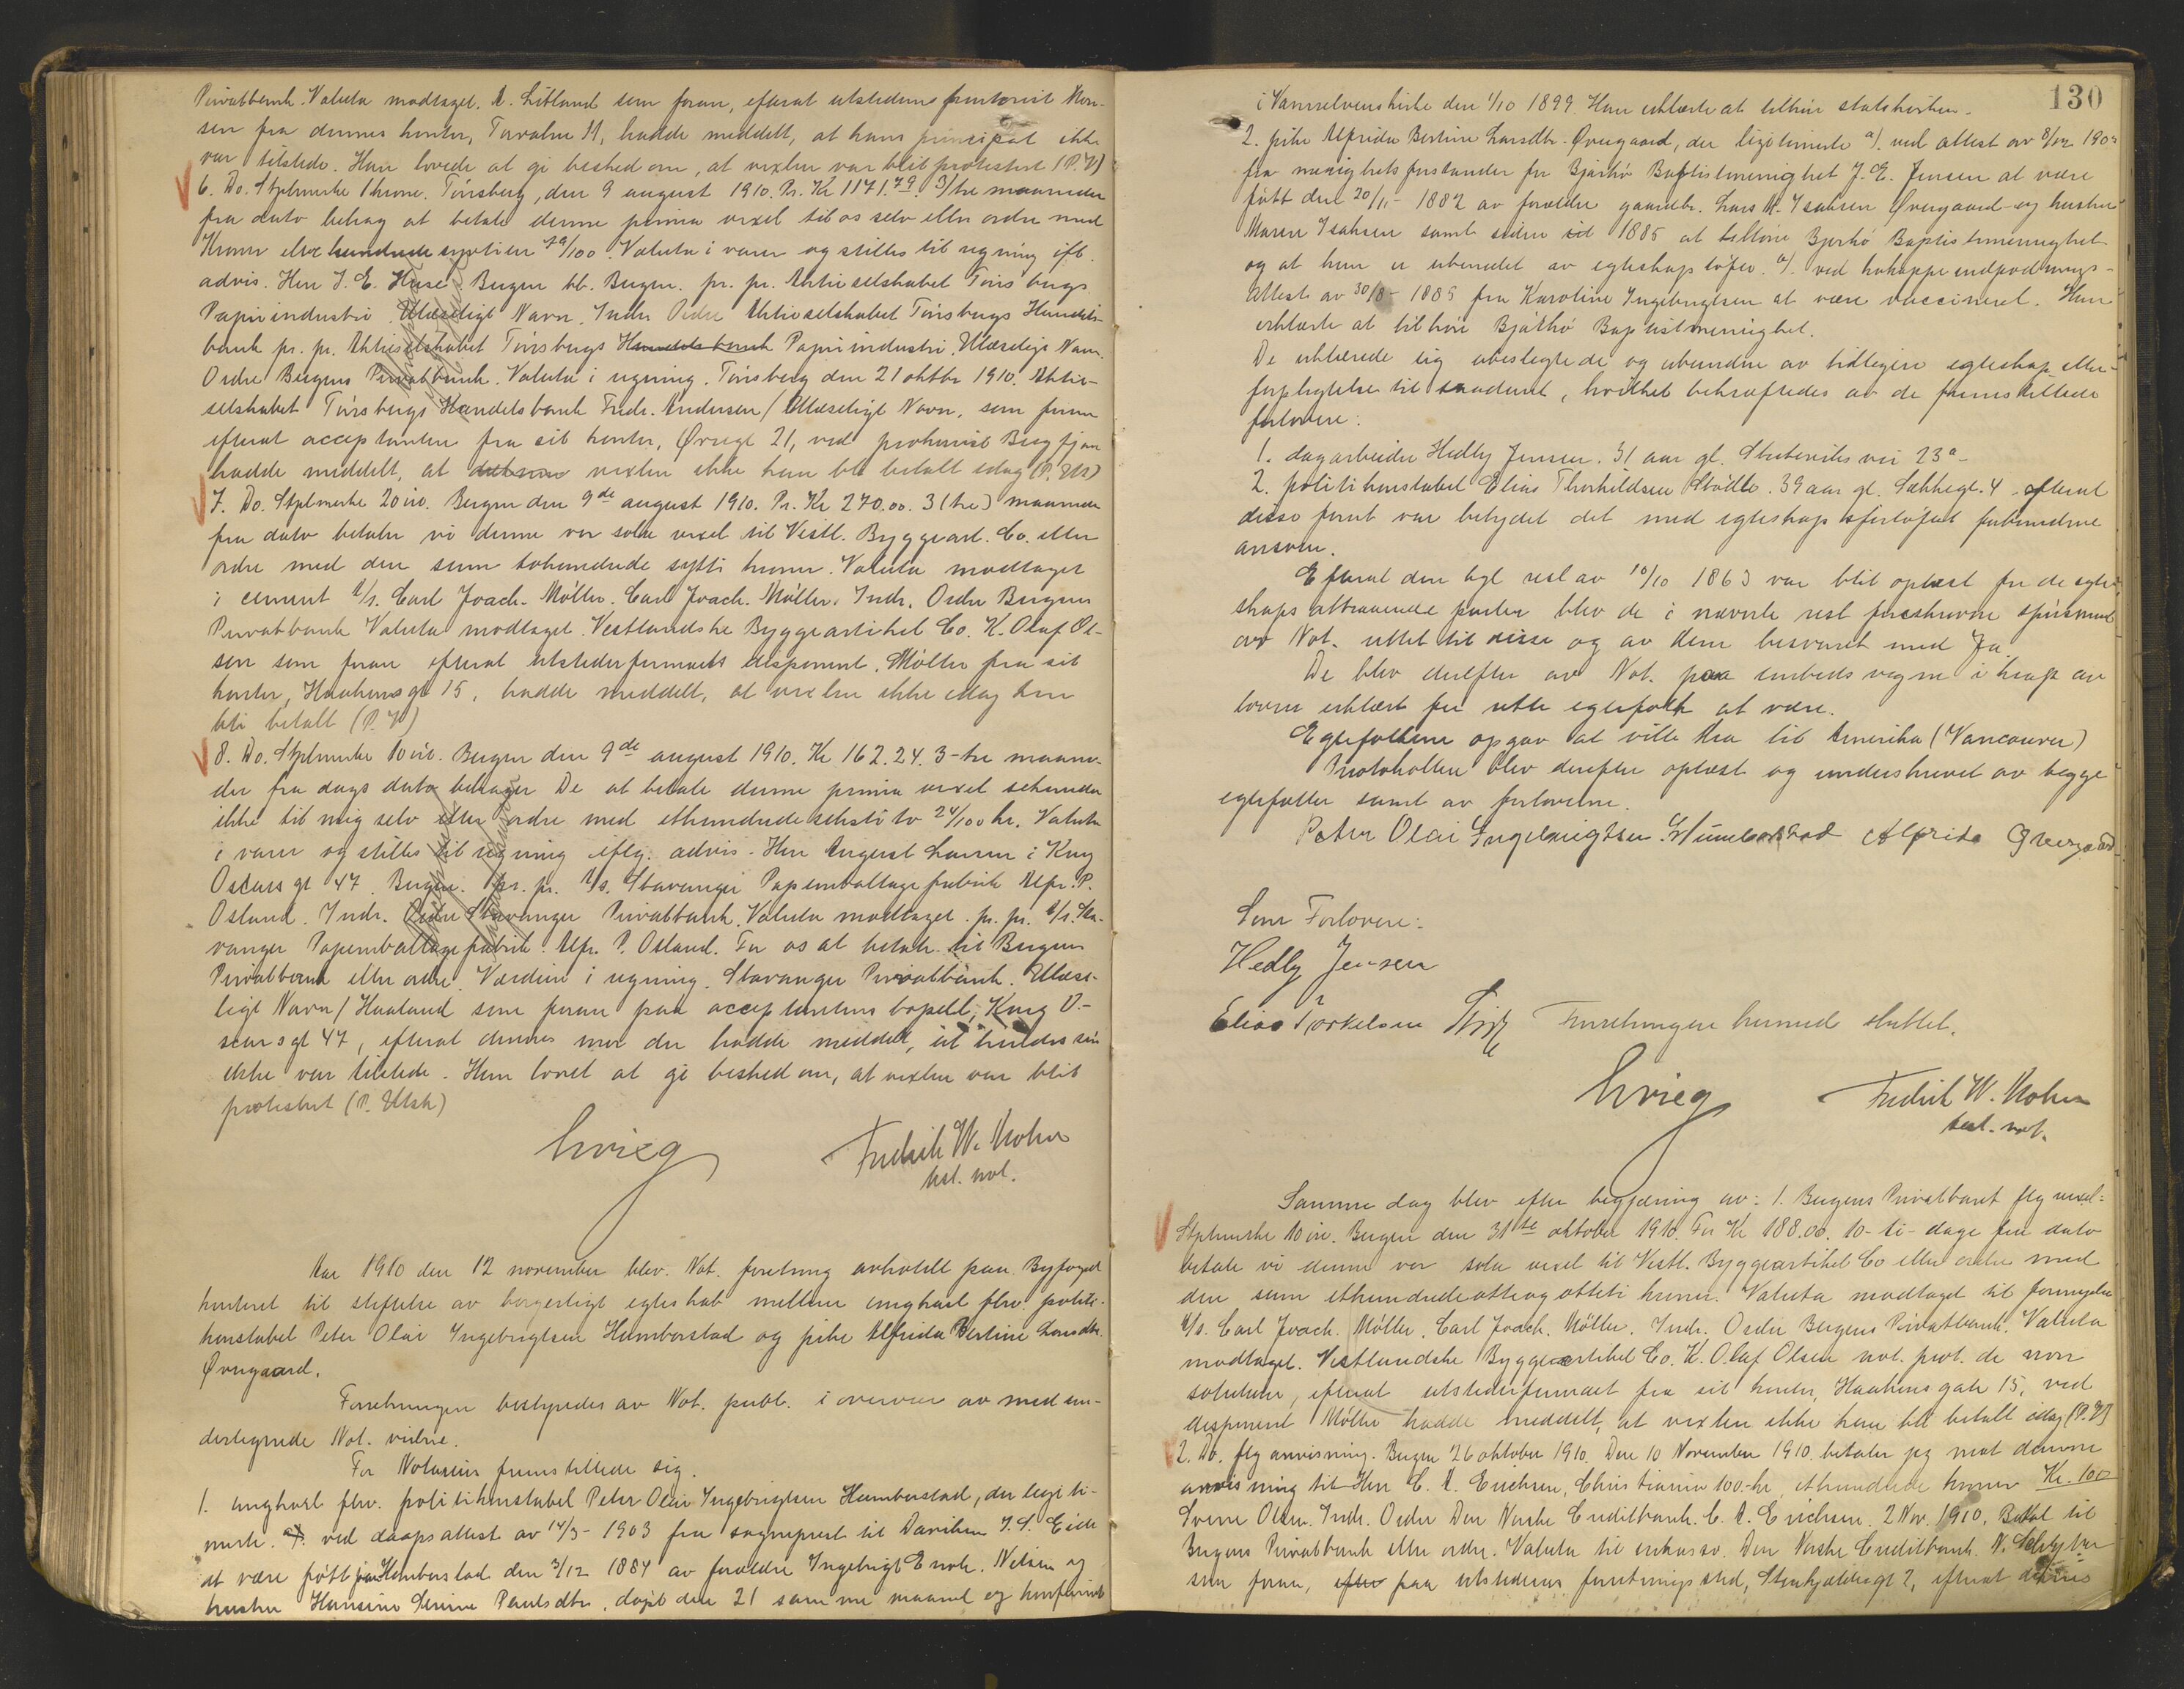 Privatbank. Valuta modtaget. A. Litland som foran, efterat utstederens kontorist Mon-
sen fra dennes kontor, Torvalm 11, hadde meddelt, at hans principal ikke
var tilstede. Han lovede at gi besked om, at vexlen var blit protestert (P. V)
6. Do. Stplmerke 1 krone. Tønsberg, den 9 august 1910. Pr. Kr 1171.79. 3/tre maaneder
fra dato behag at betale denne prima vexel til os selv eller ordre med
Kroner elvehundrede syttien 79/100. Valuta i varer og stilles til regning ifl.
advis. Herr J. E. Huse Bergen bb. Bergen. pr. pr. Aktieselskabet Tønsbergs
Papirindustri. Ulæseligt Navn. Indr. Ordre Aktieselskabet Tønsbergs Handels-
bank pr. pr. Aktieselskabet Tønsbergs Handelsbank Papirindustri. Ulæseligt Navn.
Ordre Bergens Privatbank. Valuta i regning. Tønsberg den 21 oktbr 1910. Aktie-
selskabet Tønsbergs Handelsbank Fredr. Andersen / Ulæseligt Navn, som foran
efterat acceptanten fra sit kontor, Øvregt 21, ved prokurist Bergfjon
hadde meddelt, at vexlen ikke kan bli betalt idag (P. Utst)
7. Do. Stplmerke 20 øre. Bergen den 9de august 1910. Pr. Kr 270.00. 3 (tre) maaneder
fra dato betaler vi denne vor sola vexel til Vestl. Byggeart. Co. eller
ordre med den sum tohundrede sytti kroner. Valuta modtaget
i cement A/S. Carl Joach. Møller. Carl Joach. Møller. Indr. Ordre Bergens
Privatbank Valuta modtaget. Vestlandske Byggeartikel Co. K. Olaf Ol-
sen som foran efterat utstederfirmaets disponent, Møller fra sit
kontor, Haakonsgt 15, hadde meddelt, at vexlen ikke idag kan
bli betalt (P. V)
8. Do. Stplmerke 10 øre. Bergen den 9de august 1910. Kr 162.24. 3-tre maane-
der fra dags dato behager De at betale denne prima vexel sekunda
ikke til mig selv eller ordre med ethundredesekstito 24/100 kr. Valuta
i varer og stilles til regning iflg. advis. Herr August Larsen i Kong
Oscars gt 47. Bergen. pr. pr. A/S. Stavanger Papemballagefabrik Alfr. P.
Osland. Indr. Ordre Stavanger Privatbank. Valuta modtaget. pr. pr. A/S. Sta-
vanger Papemballagefabrik. Alfr. P. Osland. For os at betale til Bergens
Privatbank eller ordre. Værdien i regning. Stavanger Privatbank. Ulæse-
ligt Navn / Haaland som foran paa acceptantens bopæl, Kong O-
scars gt 47, efterat dennes mor der hadde meddelt, at hendes søn
ikke var tilstede. Hun lovet at gi besked om, at vexlen var blit
protestert (P. Utst)
Krieg Fredrik W. Mohn
kst. not.
Aar 1910 den 12 november blev Not. forretning avholdt paa Byfoged
kontoret til stiftelse av borgerligt egteskab mellem ungkarl fhv. politi-
konstabel Peter Olai Ingebrigtsen Humborstad og pike Alfrida Bertine Larsdtr.
Øvregaard.
Forretningen bestyredes av Not. publ. i overvær av med un-
dertegnede Not. vidne.
For Notarius fremstillede sig.
1. ungkarl fhv. politikonstabel Peter Olai Ingebrigtsen Humborstad, der legiti-
merte. a/. ved daapsattest av 14/3-1903 fra sogneprest til Daviken J. S. Eide
at være født paa Humborstad den 3/12 1884 av forældre Ingebrigt Enok. Nilsen og
hustru Hansine Serine Paulsdtr, døpt den 21 samme maaned og konfirmert
130
i Vannelvens kirke den 1/10 1899. Han erklærte at tilhøre statskirken.
2. pike Alfrida Bertine Larsdtr. Øvregaard, der legitimerte a/. ved attest av 8/12 1905
fra menighetsforstander for Bjarkø Baptistmenighet J. E. Jensen at være
født den 20/11-1882 av forældre gaardbr. Lars M. Isaksen Øvregaard og hustru
Maren Isaksen samt siden 1885 at tilhøre Bjerkø Baptistmenighet
og at hun er ubundet av egteskapsløfter. b/. ved kokoppeindpodnings-
attest av 30/8-1885 fra Karoline Ingebrigtsen at være vaccineret. Hun
erklærte at tilhøre Bjarkø Baptistmenighet.
De erklærede sig ubeslegtede og ubundne av tidligere egteskap eller
forpligtelse til saadant, hvilket bekræftedes av de fremstillede
forlovere:
1. dagarbeider Hedly Jensen. 31 aar gl. Skuteviksvei 23a-
2. politikonstabel Elias Thorkildsen Stødle. 39 aar gl. Sækkegt. 4. efterat
disse først var betydet det med egteskapsforløftet forbundne
ansvar.
Efterat den kgl resl av 10/10 1863 var blit oplæst for de egte-
skaps attraaende parter blev de i nævnte resl foreskrevne spørsmaal
av Not. rettet til disse og av dem besvaret med Ja.
De blev derefter av Not. paa embeds vegne i kraft av
loven erklært for rette egtefolk at være.
Egtefolkene opgav at ville dra til Amerika (Vancouver)
Protokollen blev derefter oplæst og underskrevet av begge
egtefæller samt av forloverne.
Peter Olai Ingebrigtsen Humborstad Alfrida Øvregaard
Som Forlovere:
Hedly Jensen
Elias Torkelsen Forretningen hermed sluttet.
Krieg Fredrik W. Mohn
kst. not.
Samme dag blev efter begjæring av: 1. Bergens Privatbank flg vexel:
Stplmerke 10 øre. Bergen den 31te oktober 1910. For Kr 188.00. 10-ti-dage fra dato
betale vi denne vor sola vexel til Vestl. Byggeartikel Co eller ordre med
den sum ethundredeotteogotteti kroner. Valuta modtaget til fornyelse
A/S. Carl Joach. Møller. Carl Joach. Møller. Indr. Ordre Bergens Privatbank. Valuta
modtaget. Vestlandske Byggeartikel Co. K. Olaf Olsen not. prot. de non
solutione, efterat utstederfirmaet fra sit kontor, Haakonsgate 15, ved
disponent Møller hadde meddelt, at vexlen ikke kan bli betalt idag (P. V)
2. Do. flg anvisning. Bergen 26 oktober 1910. Den 10 November 1910 betaler jeg mot denne
anvisning til Herr C. A. Erichsen, Christiania 100-kr ethundrede kroner Kr. 100
Sverre Olsen. Indr. Ordre Den Norske Creditbank. C. A. Erichsen. 2 Nov. 1910. Betal til
Bergens Privatbank eller ordre. Valuta til inkasso. Den Norske Creditbank. N.
som foran, efter paa utstederens forretningssted, Stenkjældergt 2, efterat dennes